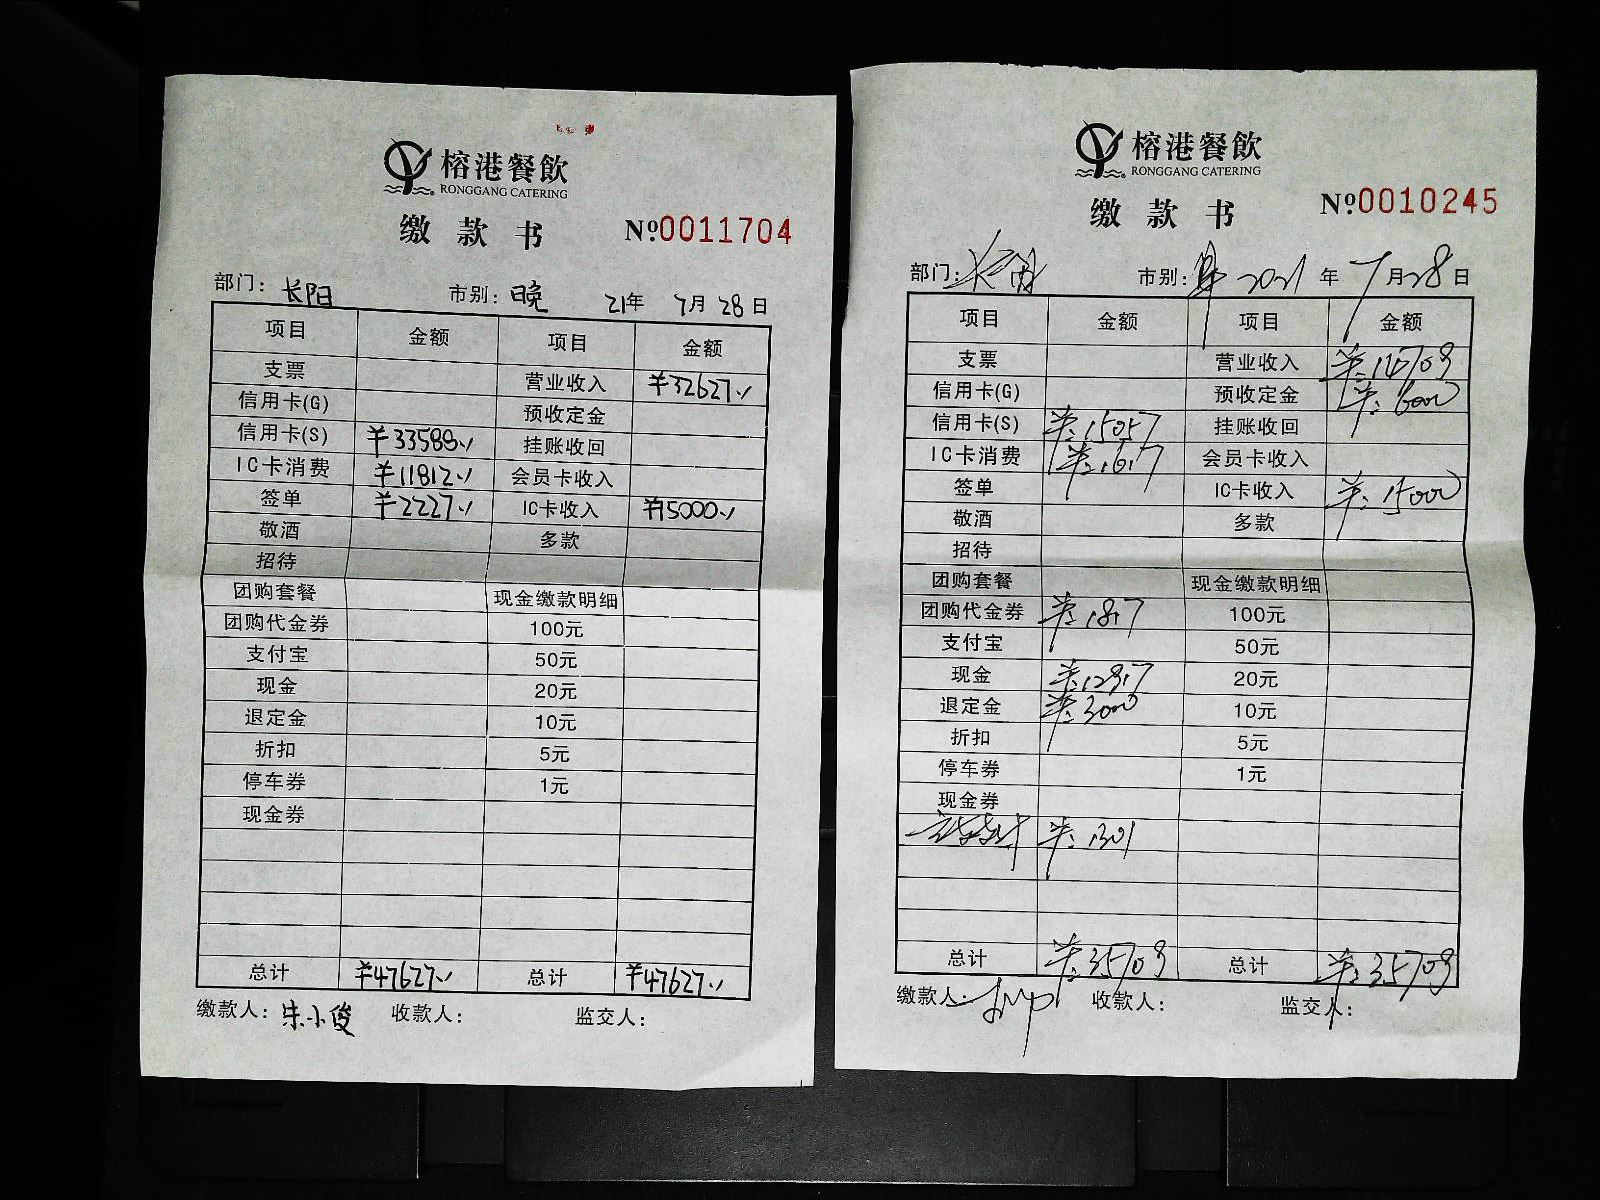 榕港餐飲
RONGGANG CATERING
缴款书 №0011704
部门: 长阳 市别: 晚 21年 7月 28日
项目 金额 项目 金额
支票 营业收入 ¥32627.√
信用卡(G) 预收定金
信用卡(S) ¥33588.√ 挂账收回
IC卡消费 ¥11812.√ 会员卡收入
签单 ¥2227.√ IC卡收入 ¥15000.√
敬酒 多款
招待
团购套餐 现金缴款明细
团购代金券 100元
支付宝 50元
现金 20元
退定金 10元
折扣 5元
停车券 1元
现金券
总计 ¥47627.√ 总计 ¥47627.√
缴款人: 朱小俊 收款人: 监交人:
榕港餐飲
RONGGANG CATERING
缴款书 №0010245
部门: 市别: 2021年 7月28日
项目 金额 项目 金额
支票 营业收入
信用卡(G) 预收定金 ¥:6000
信用卡(S) ¥:15057 挂账收回
IC卡消费 会员卡收入
签单 IC卡收入 ¥:15000
敬酒 多款
招待
团购套餐 现金缴款明细
团购代金券 100元
支付宝 50元
现金 20元
退定金 ¥:3000 10元
折扣 5元
停车券 1元
现金券
¥:1301
总计 ¥:35709 总计 ¥:35709
缴款人: 收款人: 监交人: